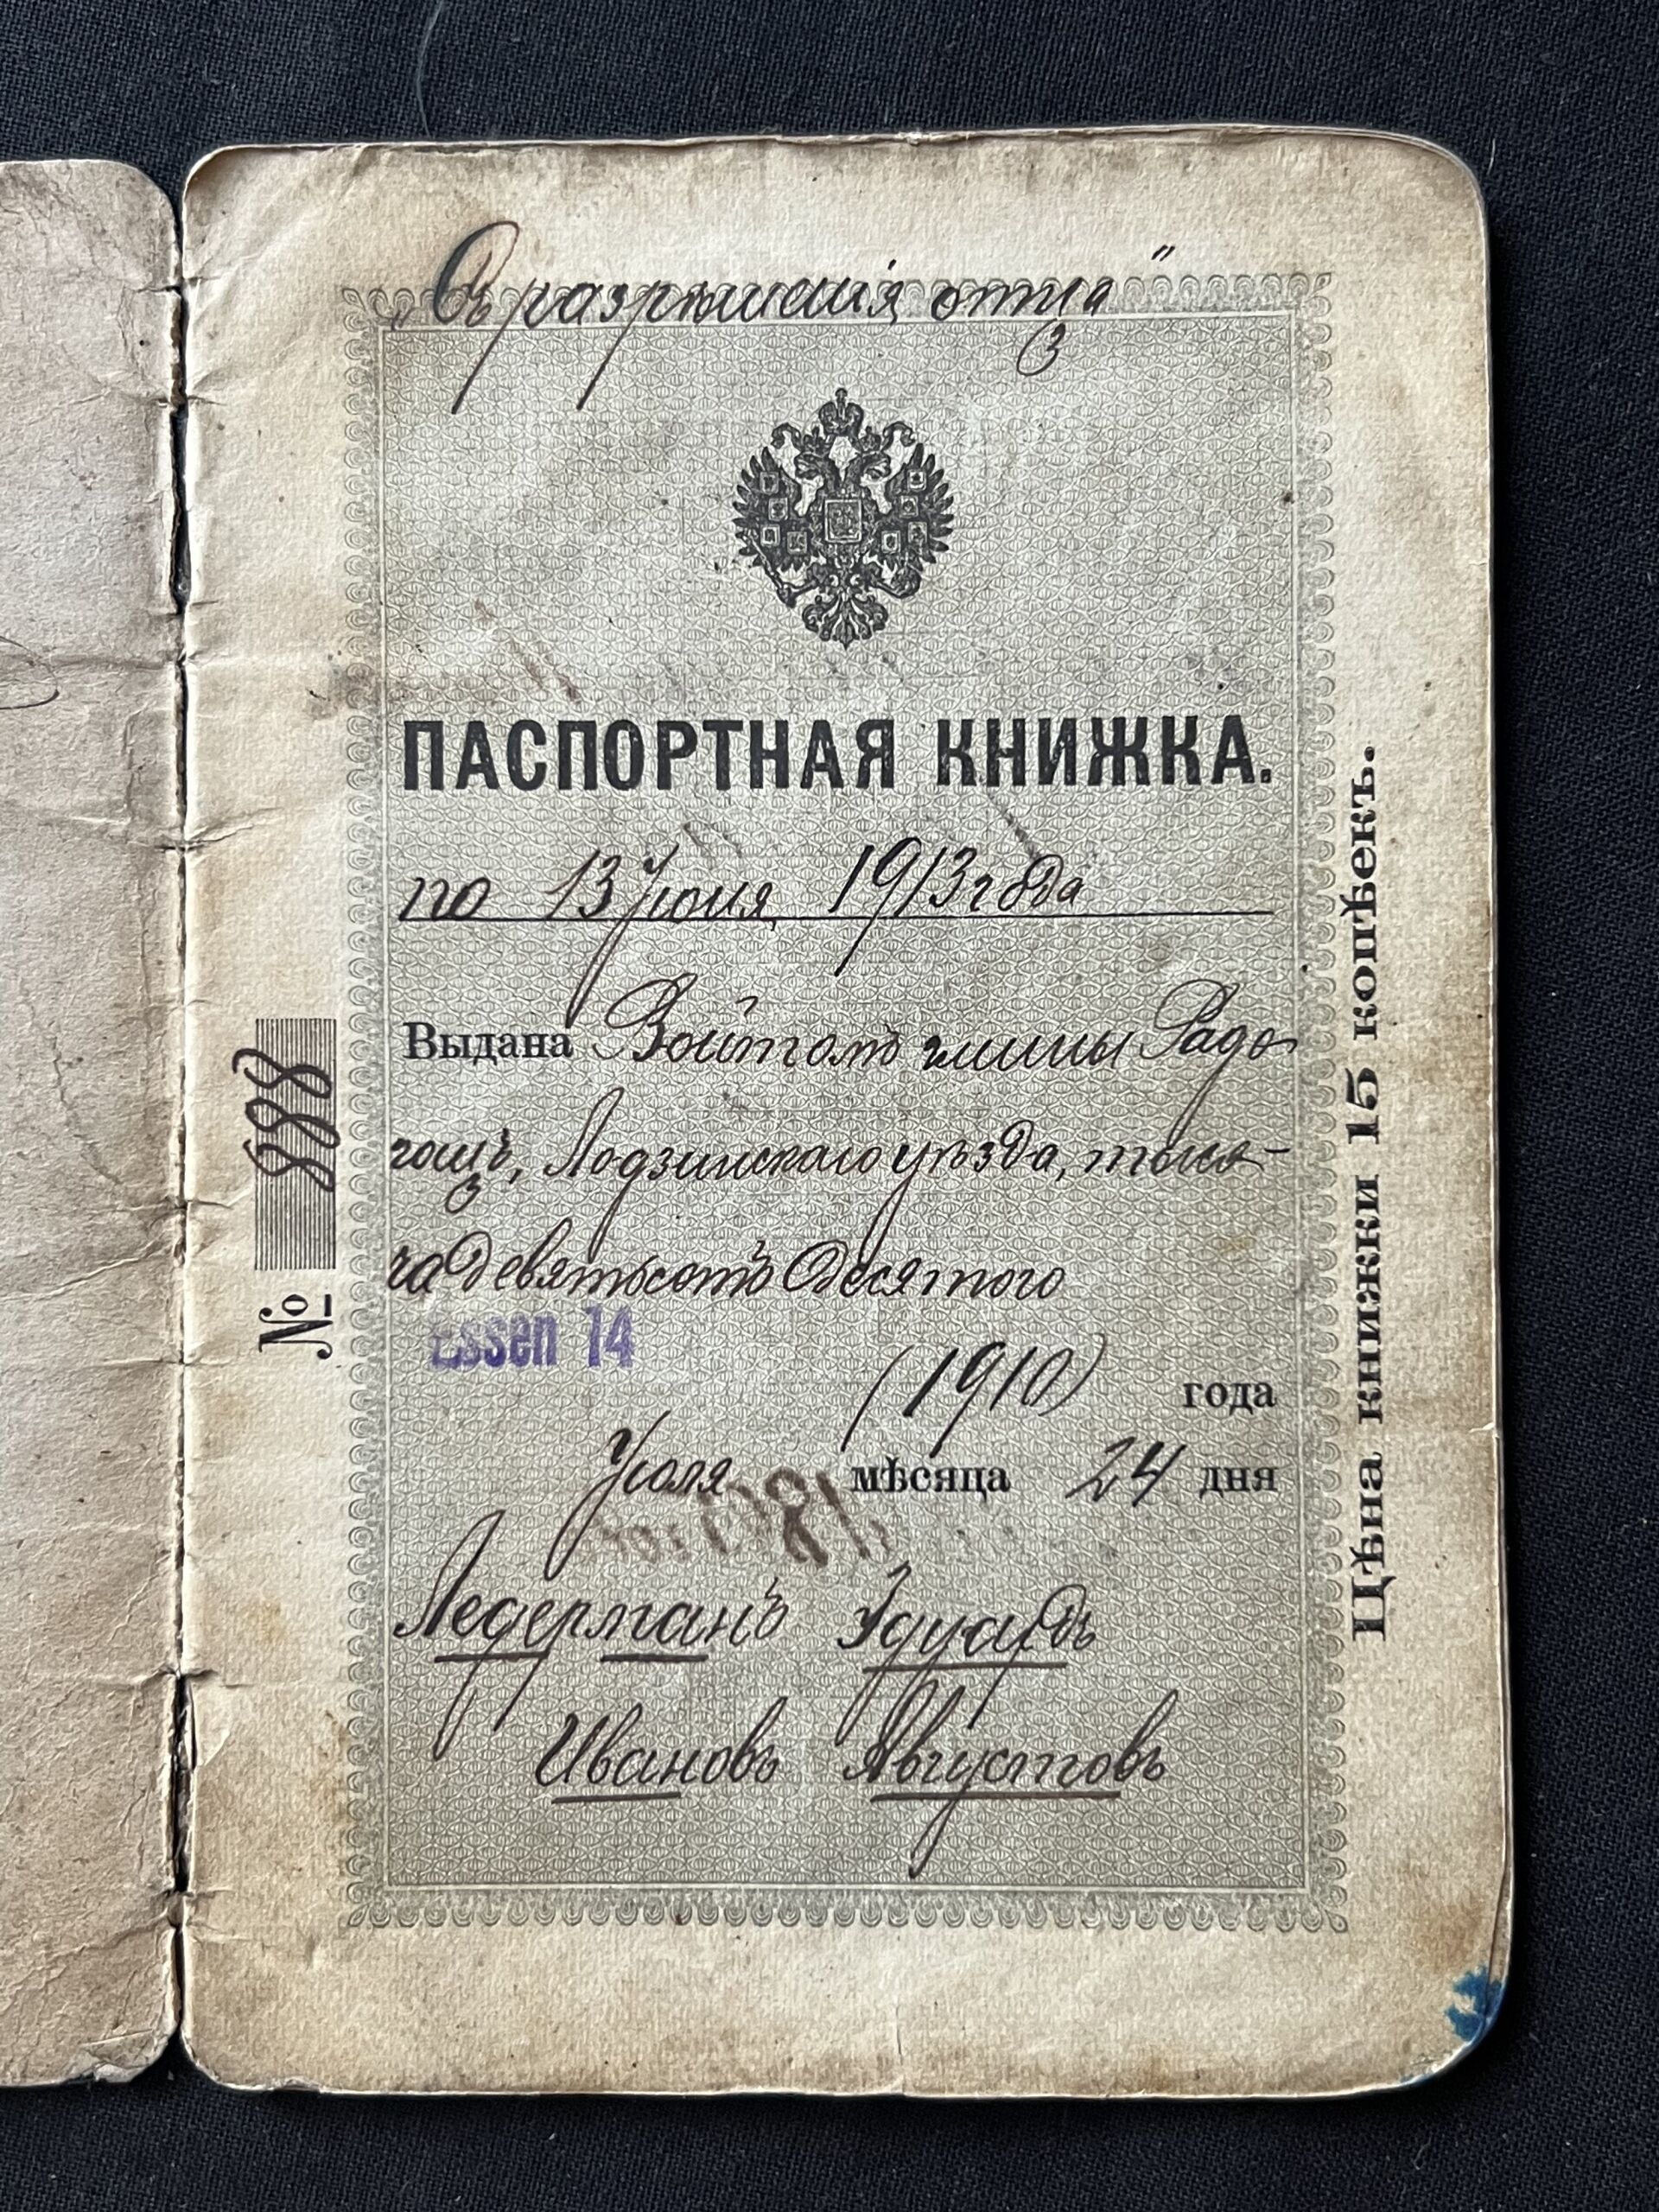 „Съ разрѣшенія отца"
ПАСПОРТНАЯ КНИЖКА.
по 13 Іюня 1913 года
Выдана Войтомъ гмины Радо-
гощъ, Лодзинскаго уѣзда, тыся-
ча девятьсотъ десятого
Essen 14
(1910) года
Іюля мѣсяца 24 дня
Ледерманъ Эдуардъ
Ивановъ Августовъ
№ 888
Цѣна книжки 15 копѣекъ.